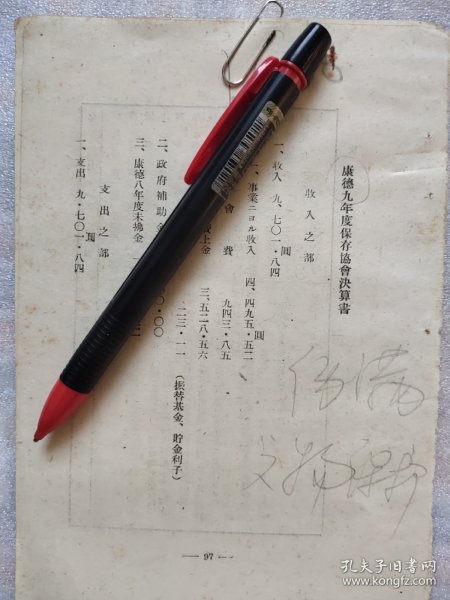 康德九年度保存協會決算書
收入之部
一、收入 九、七〇一・八四
圓
一、事業ニヨル收入 四、四九五・五二
圓
會費 九四三・八五
上金 三、五二八・五六
二三三・一一 (振替基金、貯金利子)
二、政府補助金 〇・〇〇
三、康德八年度未拂金
支出之部
一、支出 九・七〇一・八四
圓
伪满
文物
— 97 —
孔夫子旧书网
www.kongfz.com